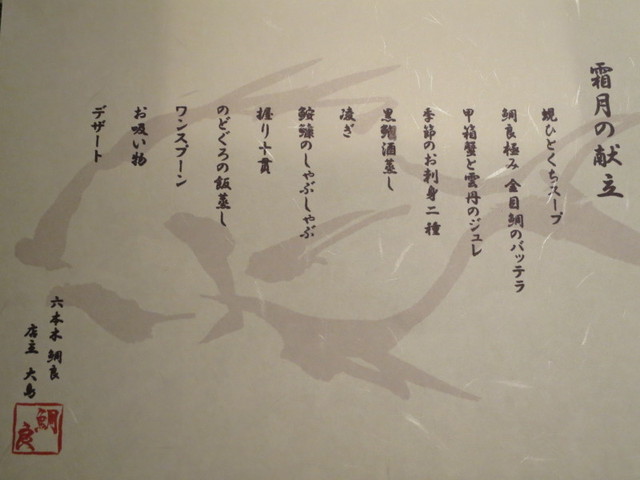 霜月の献立
蜆ひとくちスープ
鯛良極み 金目鯛のバッテラ
甲箱蟹と雲丹のジュレ
季節のお刺身二種
黒鮑酒蒸し
凌ぎ
鮟鱇のしゃぶしゃぶ
握り十貫
のどぐろの飯蒸し
ワンスプーン
お吸い物
デザート
六本木 鯛良
店主 大島
鯛良